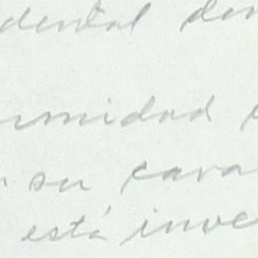 dental don
rmidad
su cava
está inve